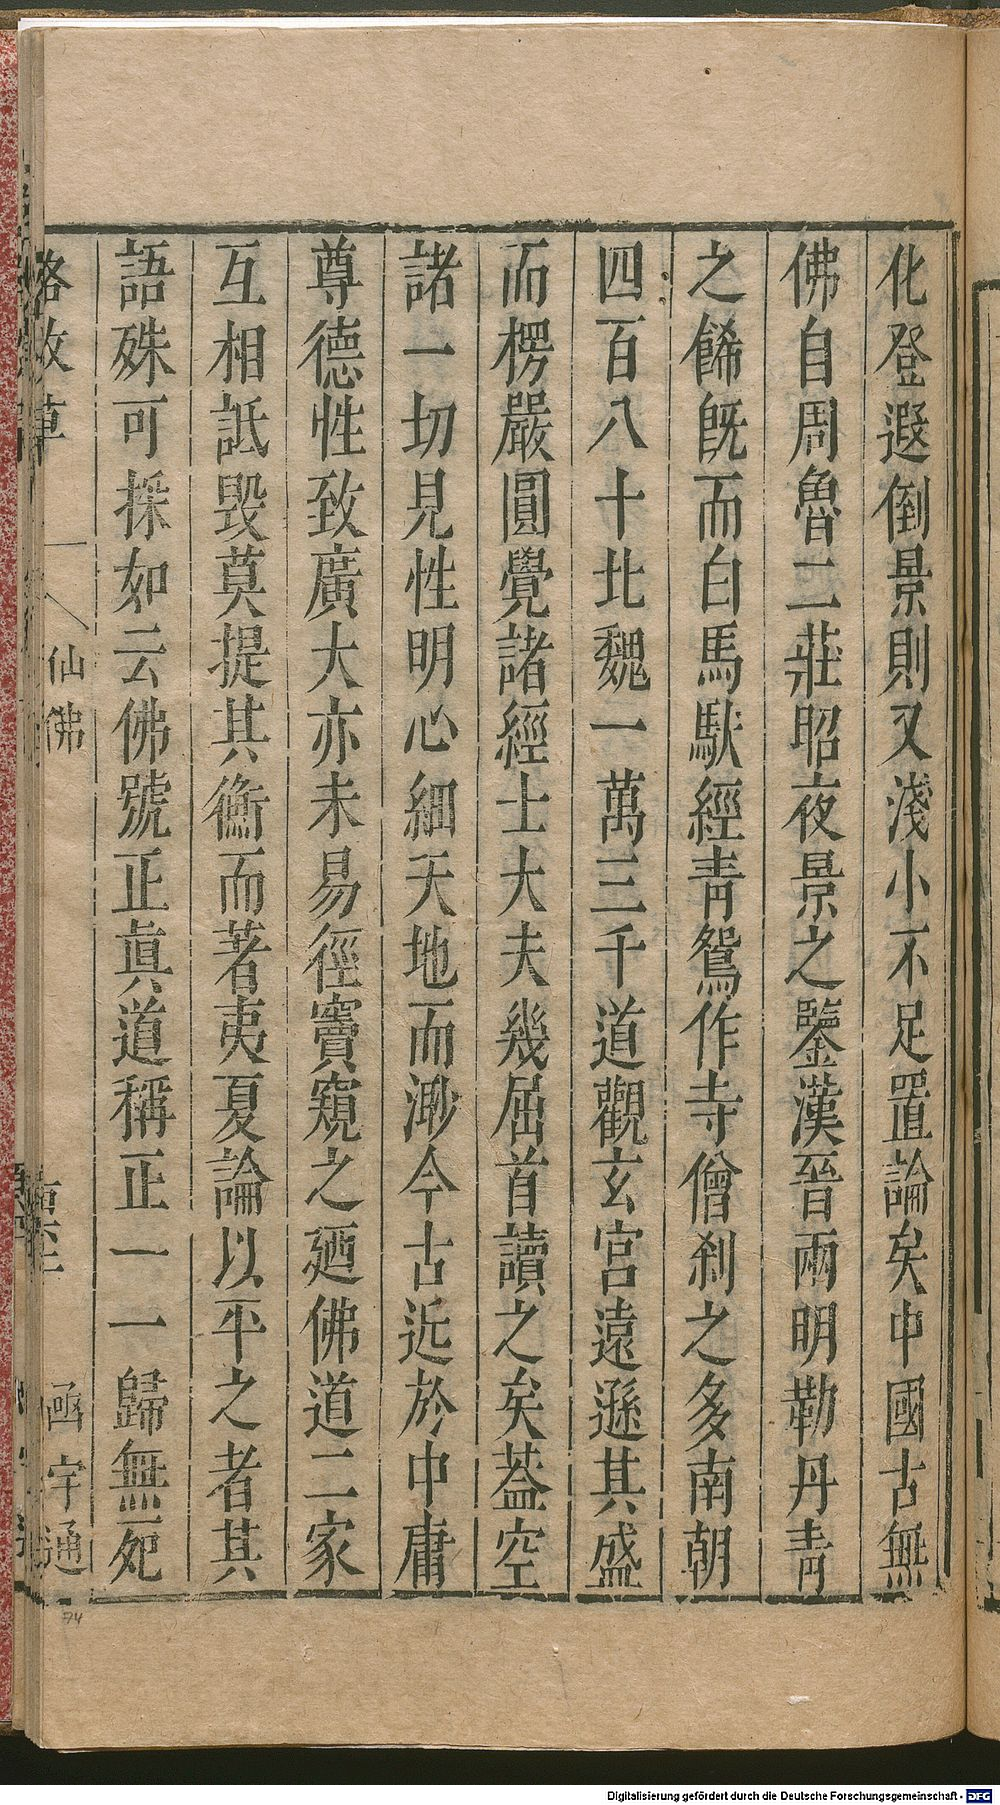 化登遐倒景則又淺小不足置論矣中國古無
佛自周魯二莊昭夜景之鑒漢晉兩明勒丹青
之餙旣而白馬馱經青鴛作寺僧刹之多南朝
四百八十北魏一萬三千道觀玄宮遠遜其盛
而楞嚴圓覺諸經士大夫幾屈首讀之矣葢空
諸一切見性明心細天地而渺今古近於中庸
尊德性致廣大亦未易徑竇窺之廼佛道二家
互相詆毀莫提其衡而著夷夏論以平之者其
語殊可採如云佛號正眞道稱正一一歸無死
格致草
仙佛
函宇通
74
Digitalisierung gefördert durch die Deutsche Forschungsgemeinschaft - DFG